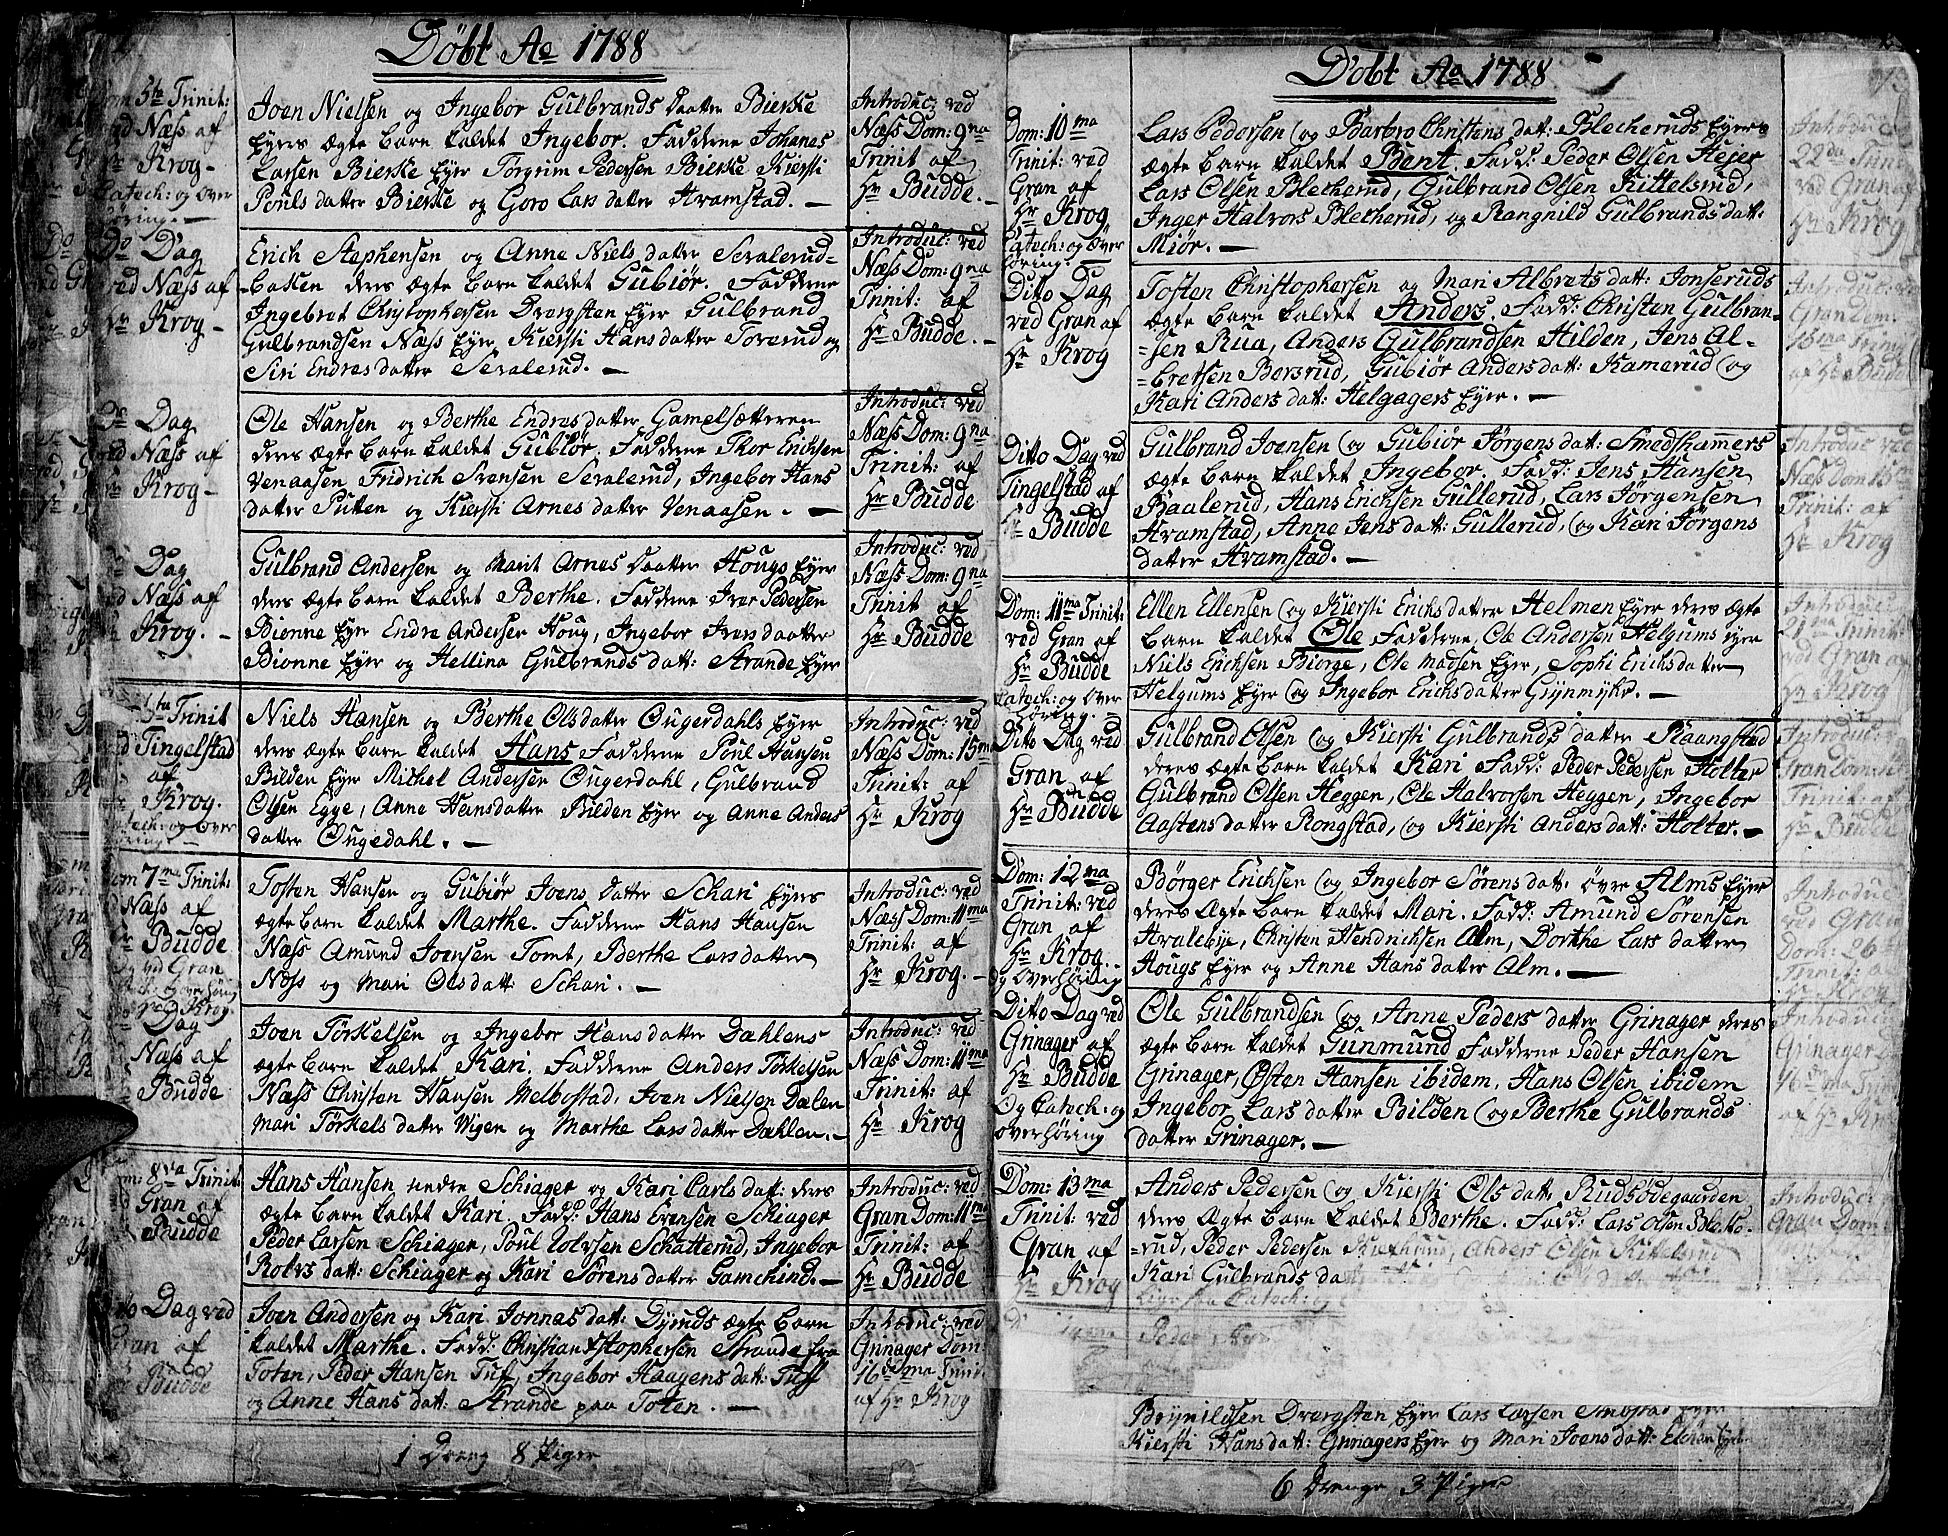 Døbt Ao 1788
5te Trinit:
Næss af
Krog-
Catech: og over
høring. —
Joen Nielsen og Ingebor Gulbrands Daatter Bierke
Eyers ægte Barn kaldet Ingebor. Fadderne Johanes
Larsen Bierke Eyer Torgrim Pedersen Bierke Kiersti
Pouls datter Bierke og Goro Lars datter Hramstad. —
Introduc: ved
Næss Dom: 9na
Trinit af
Hr Budde. —
Do Dag
ved Næss af
Hr Krog-
Erich Stephensen og Anne Niels datter Seralerud-
bakken deres ægte Barn kaldet Gubiør. Fadderne
Ingebret Christophersen Dvergsten Eyer Gulbrand
Gulbrandsen Næss Eyer, Kiersti Hans datter Toverud og
Siri Endres datter Seralerud. —
Introduc: ved
Næss Dom: 9na
Trinit: af
Hr Budde. —
Do Dag
ved Næss af
Hr Krog-
Ole Hansen og Berthe Endres datter Gamelsætteren
deres ægte Barn kaldet Gubiør. Fadderne Thor Erichsen
Venaasen Fridrich Svensen Seralerud, Ingebor Hans
datter Putten og Kiersti Arnes datter Venaasen. —
Introduc: ved
Næss Dom: 9na
Trinit: af
Hr Budde
Dag
Næss af
Krog. —
Gulbrand Andersen og Marit Arnes Daatter Hougs Eyer
deres ægte Barn kaldet Berthe. Fadderne Iver Pedersen
Bionne Eyer Endre Andersen Houg, Ingebor Ivers daatter
Bionne Eyer og Hellina Gulbrands datt: Strande Eyer
Introduc: ved
Næss Dom: 9na
Trinit af
Hr Budde
Trinit
Tingelstad
af
Krog.
Catech: og over
høring. —
Niels Hansen og Berthe Ols datter Ougerdahls Eyer
deres ægte Barn kaldet Hans Fadderne Poul Hansen
Bilden Eyer Michel Andersen Ougerdahl, Gulbrand
Olsen Egge, Anne Hansdatter Bilden Eyer og Anne Anders
datter Ougedahl. —
Introduc: ved
Næss Dom: 15ma
Trinit: af
Hr Krog
Dom 7ma Trinit:
Næss af
Budde
og ved Gran
og overhøring
ved Krog.
Tosten Hansen og Gubiør Joens Datter Schari Eyers
ægte Barn kaldet Marthe. Fadderne Hans Hansen
Næss Amund Joensen Tomt, Berthe Larsdatter
Næss og Mari Ols datt: Schari. —
Introduc: ved
Næss Dom: 11ma
Trinit: af
Hr Krog. —
Dag
Næss af
Budde
Joen Torkelsen og Ingebor Hans datter Dæhlens
ægte Barn kaldet Kari. Fadderne Anders Torkelsen
Næss Christen Hansen Melbostad, Joen Nielsen Dælen
Mari Torkels datter Wigen og Marthe Lars datter Dæhlen. —
Introduc: ved
Næss Dom: 11ma
Trinit: af
Hr Krog
8va Trinit:
Gran af
Budde
Hans Hansen nedre Schiager og Kari Carls datt: deres
ægte Barn kaldet Kari. Fadd: Hans Evensen Schiager
Peder Larsen Schiager, Poul Schatterud, Ingebor
Rolvs datt: Schiager og Kari Sørens datter Gamchind. —
Introduc: ved
Gran Dom: 11ma
Trinit: af
Hr Budde
Dag ved
Gran af
Budde
Joen Andersen og Kari Jonnas datt: Dyruds ægte Barn
kaldet Marthe. Fadd: Christian Christophersen Strande fra
Toten, Peder Hansen Tuf, Ingebor Haagens datt: Tuf
og Anne Hans datt: Strande paa Toten. —
Introduc: ved
Grinager Dom:
16de ma Trinit
af Hr Krog
1 Dreng 8 Piger
Døbt Ao 1788
Dom: 10ma
Trinit: ved
Gran af
Hr Krog
Catech: og Over
høring. —
Lars Pedersen og Barbro Christens datt: Blecheruds Eyers
ægte Barn kaldet Bent. Fadd: Peder Olsen Hejer
Lars Olsen Blecherud, Gulbrand Olsen Kittelsrud,
Inger Halvors Blecherud, og Rangnild Gulbrands datt:
Miør. —
Introduc
22da Trin
ved Gran af
Hr Krog
Ditto Dag
ved Gran af
Hr Krog
Tosten Christophersen og Mari Albrets datt: Jonseruds
ægte Barn kaldet Anders. Fadd: Christen Gulbran-
-sen Rua, Anders Gulbrandsen Hilden, Jens Al-
-bretsen Borsrud, Gubiør Anders datt: Kamerud og
Kari Anders datt: Helgagers Eyer. —
Introduc: ved
Gran Dom:
15ma Trinit
af Hr Budde
Ditto Dag ved
Tingelstad af
Hr Budde
Gulbrand Joensen og Gubiør Jørgens datt: Smedshammers
ægte Barn kaldet Ingebor. Fadd: Jens Hansen
Baalerud, Hans Erichsen Gullerud, Lars Jørgensen
Hramstad, Anne Jens datt: Gullerud, og Kari Jørgens
datter Hramstad. —
Introduc ved
Næss Dom 15
Trinit: af
Hr Krog
Dom: 11ma Trinit:
ved Gran af
Hr Budde
Catech: og Over
høring. —
Ellen Ellensen og Kiersti Erichs datter Helmen Eyer deres ægte
Barn kaldet Ole Fadderne, Ole Andersen Helgums Eyer
Niels Erichsen Biørge, Ole Madsen Eyer, Sophi Erichs datter
Helgums Eyer og Ingebor Erichs datter Grynmyhr. —
Introduc
21ma Trinit
ved Gran af
Hr Krog
Ditto Dag ved
Gran af
Hr Budde
Gulbrand Olsen og Kiersti Gulbrands datter Raangstad
deres ægte Barn kaldet Kari Fadd: Peder Pedersen Holter
Gulbrand Olsen Heggen, Ole Halvorsen Heggen, Ingebor
Aastens datter Rongstad, og Kiersti Anders datt: Holter. —
Introduc:
Gran Dom:
Trinit: af
Hr Budde
Dom: 12ma
Trinit: ved
Gran af
Hr Krog.
og Overhøring
Børger Erichsen og Ingebor Sørens datt: øvre Alms Eyer
deres Ægte Barn kaldet Mari. Fadd: Amund Sørensen
Hvalebye, Christen Hendrichsen Alm, Dorthe Lars datter
Hougs Eyer og Anne Hans datter Alm. —
Introduc
ved Gran
Dom: 26
Trinit: a
Hr Krog
Ditto Dag ved
Grinager af
Hr Budde
Og Catech: og
overhøring
Ole Gulbrandsen og Anne Peders datter Grinager deres
ægte Barn kaldet Gunmund Fadderne Peder Hansen
Grinager, Østen Hansen ibidem, Hans Olsen ibidem
Ingebor Lars datter Bilden og Berthe Gulbrands
datter Grinager. —
Introduc:
Grinager
16de ma Trinit
af Hr Kr
Dom: 13ma
Trinit: ved
Gran af
Hr Krog
Anders Pedersen og Kiersti Ols datt: Rudsødegaarden
deres Ægte Barn kaldet Berthe. Fadd: Lars Olsen Bleche-
-rud, Peder Pedersen Anders Olsen Kittelsrud
Kari Gulbrands da
Introduc:
Gran Dom:
14ma
Peder
Brynildsen Dvergsten Eyer Lars Larsen Eyer
Kiersti Hans datt: Grinagers Eyer og Mari Joens datt: Eyer
6 Drenge 3 Piger